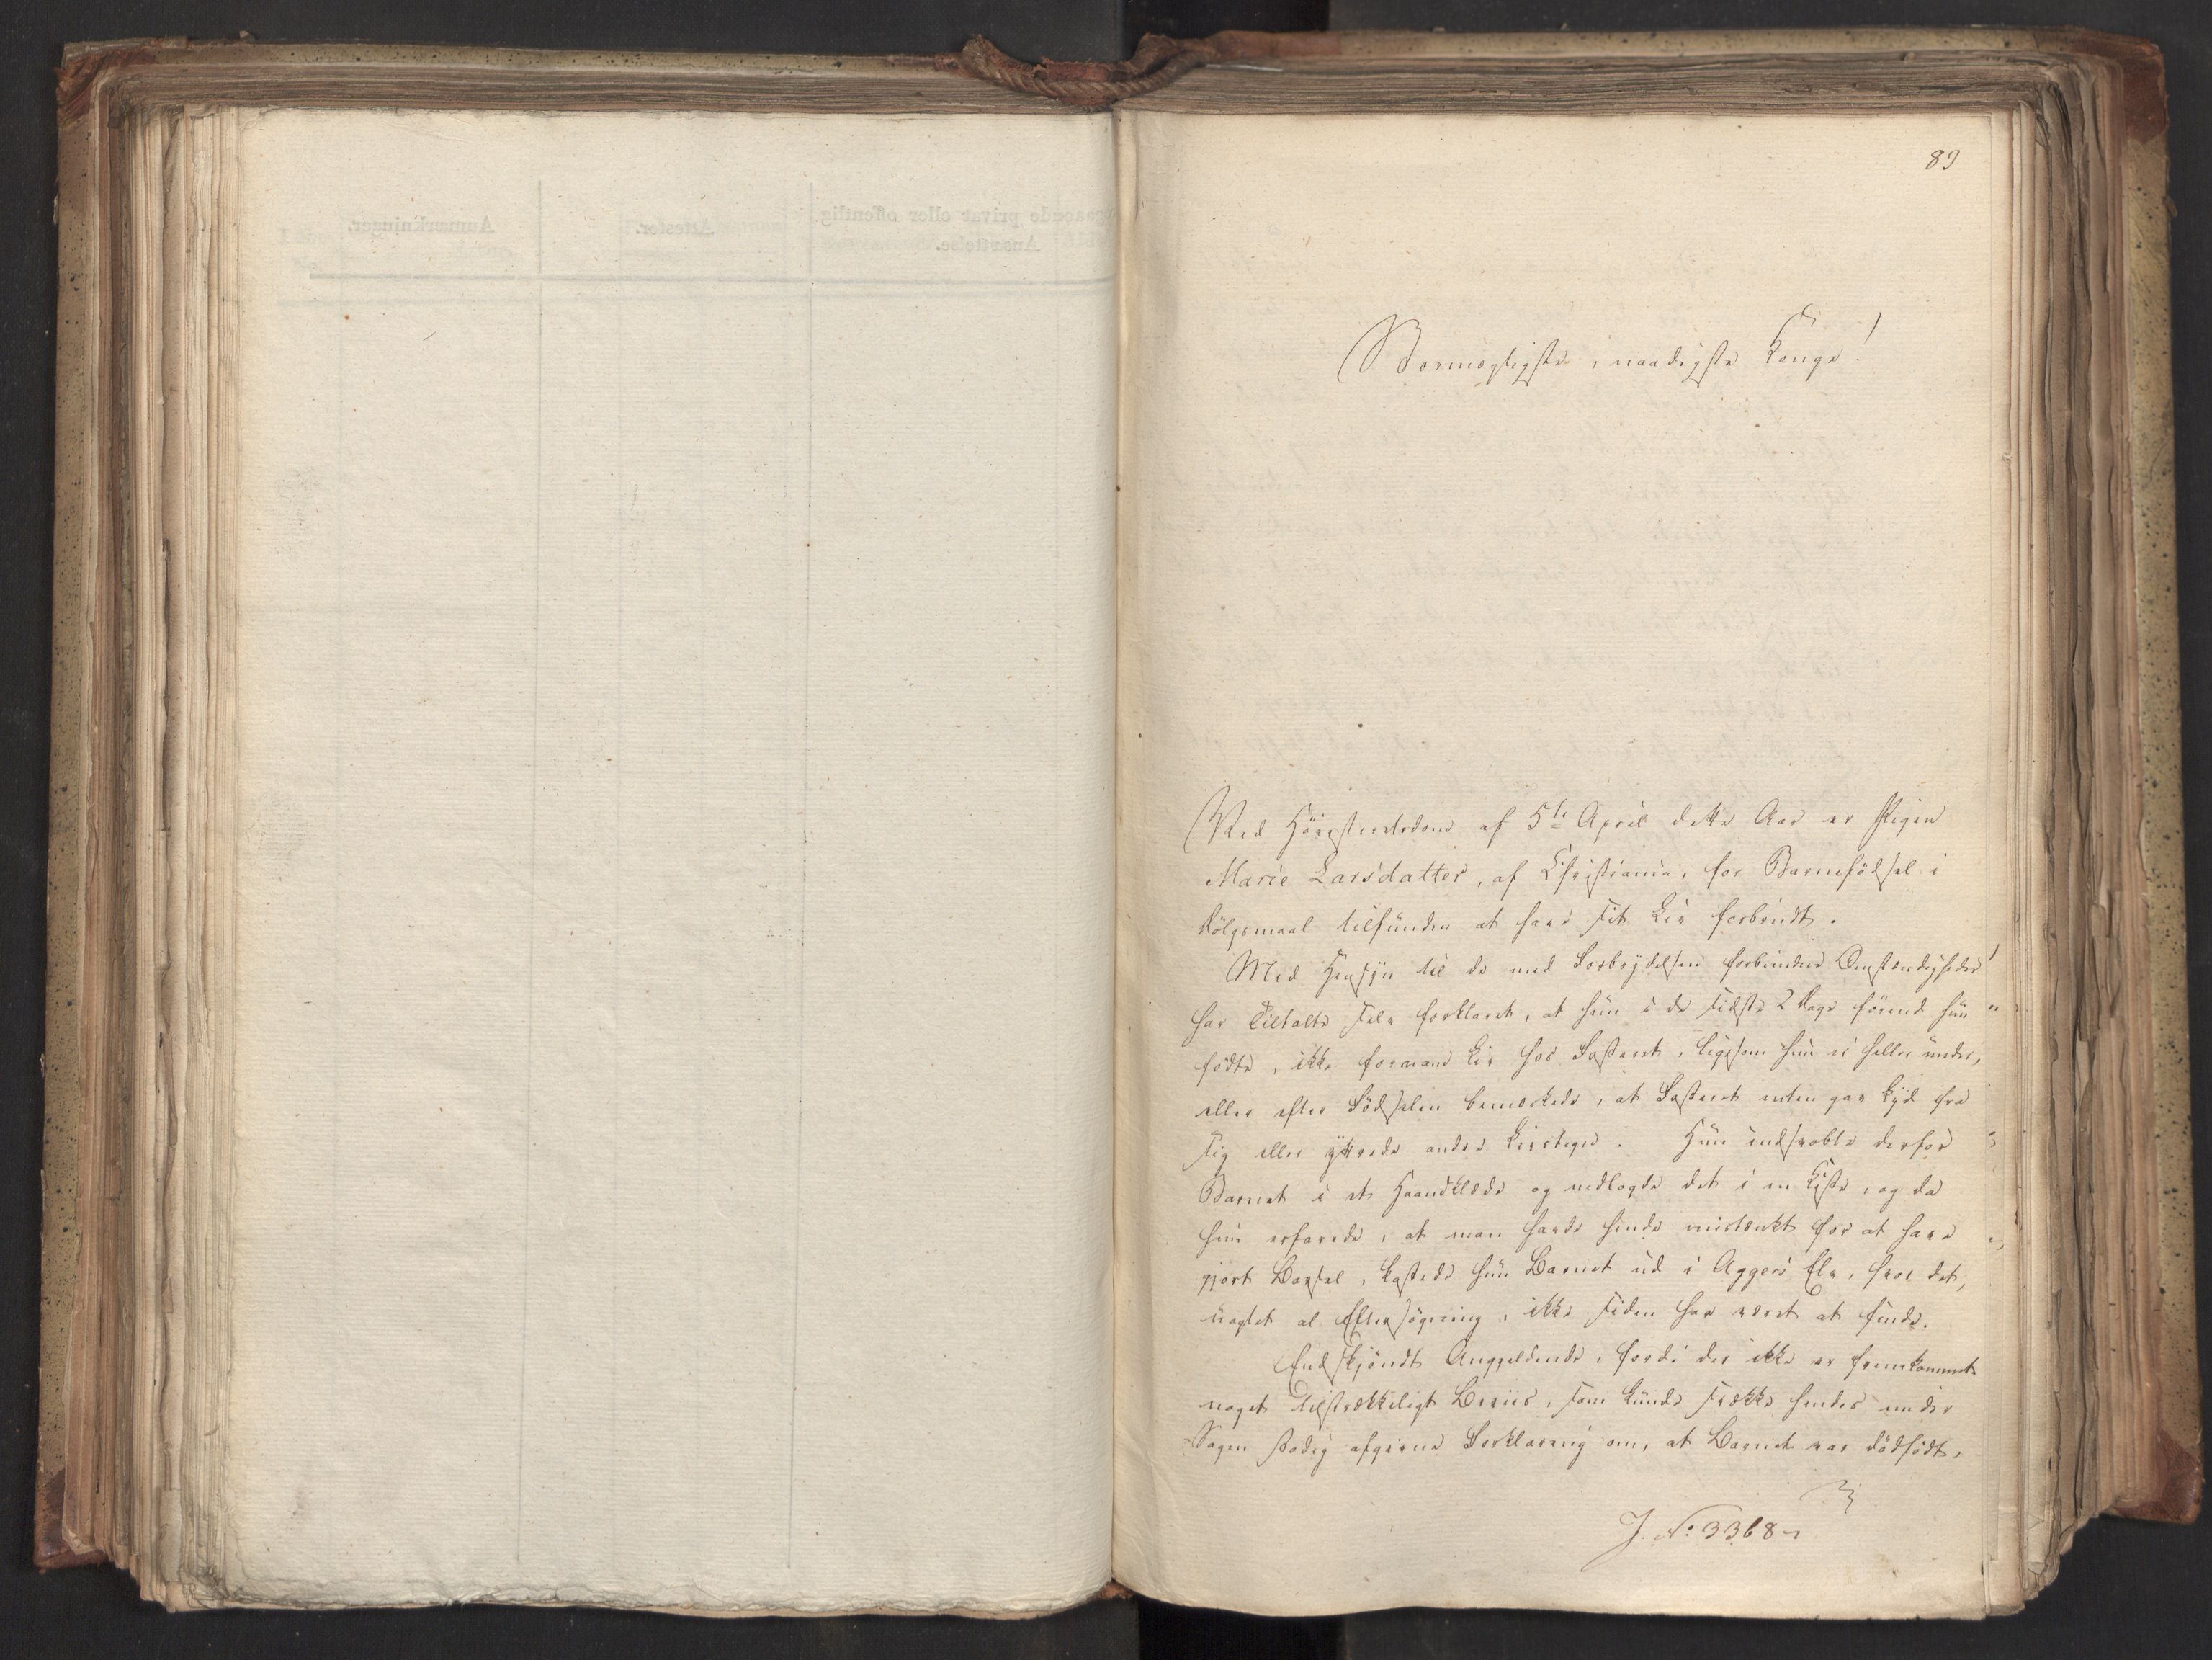 89
Stormægtigste, naadigste Konge!
Ved Höiesteretsdom af 5te April dette Aar er Pigen
Marie Larsdatter, af Christiania, for Barnefödsel i
Dölgsmaal tilfunden at have sit Liv forbrudt.
Med Hensyn til de med Forbrydelsen forbundne Omstændigheder
har Tiltalte selv forklaret, at hun i de sidste 2 Dage förend hun
födte, ikke fornam Liv hos Fosteret, ligesom hun ei heller under,
eller efter Födselen bemærkede, at Fosteret enten gav Lyd fra
sig eller yttrede andre Livstegn. Hun indsvöbte derfor
Barnet i et Haandklæde og nedlagde det i en Kiste, og da
hun erfarede, at man havde hende mistænkt for at have
gjort Barsel, kastede hun Barnet ud i Aggers Elv, hvor det,
uagtet al Eftersögning, ikke siden har været at finde.
Endskjöndt Angjeldende, fordi der ikke er fremkommet
noget tilstrækkeligt Beviis, som kunde svække hendes under
Sagen stadig afgivne Forklaring om, at Barnet var dödfödt,
J. No 3368
Anmærkninger.
Attester.
privat eller offentlig
Ansættelse.